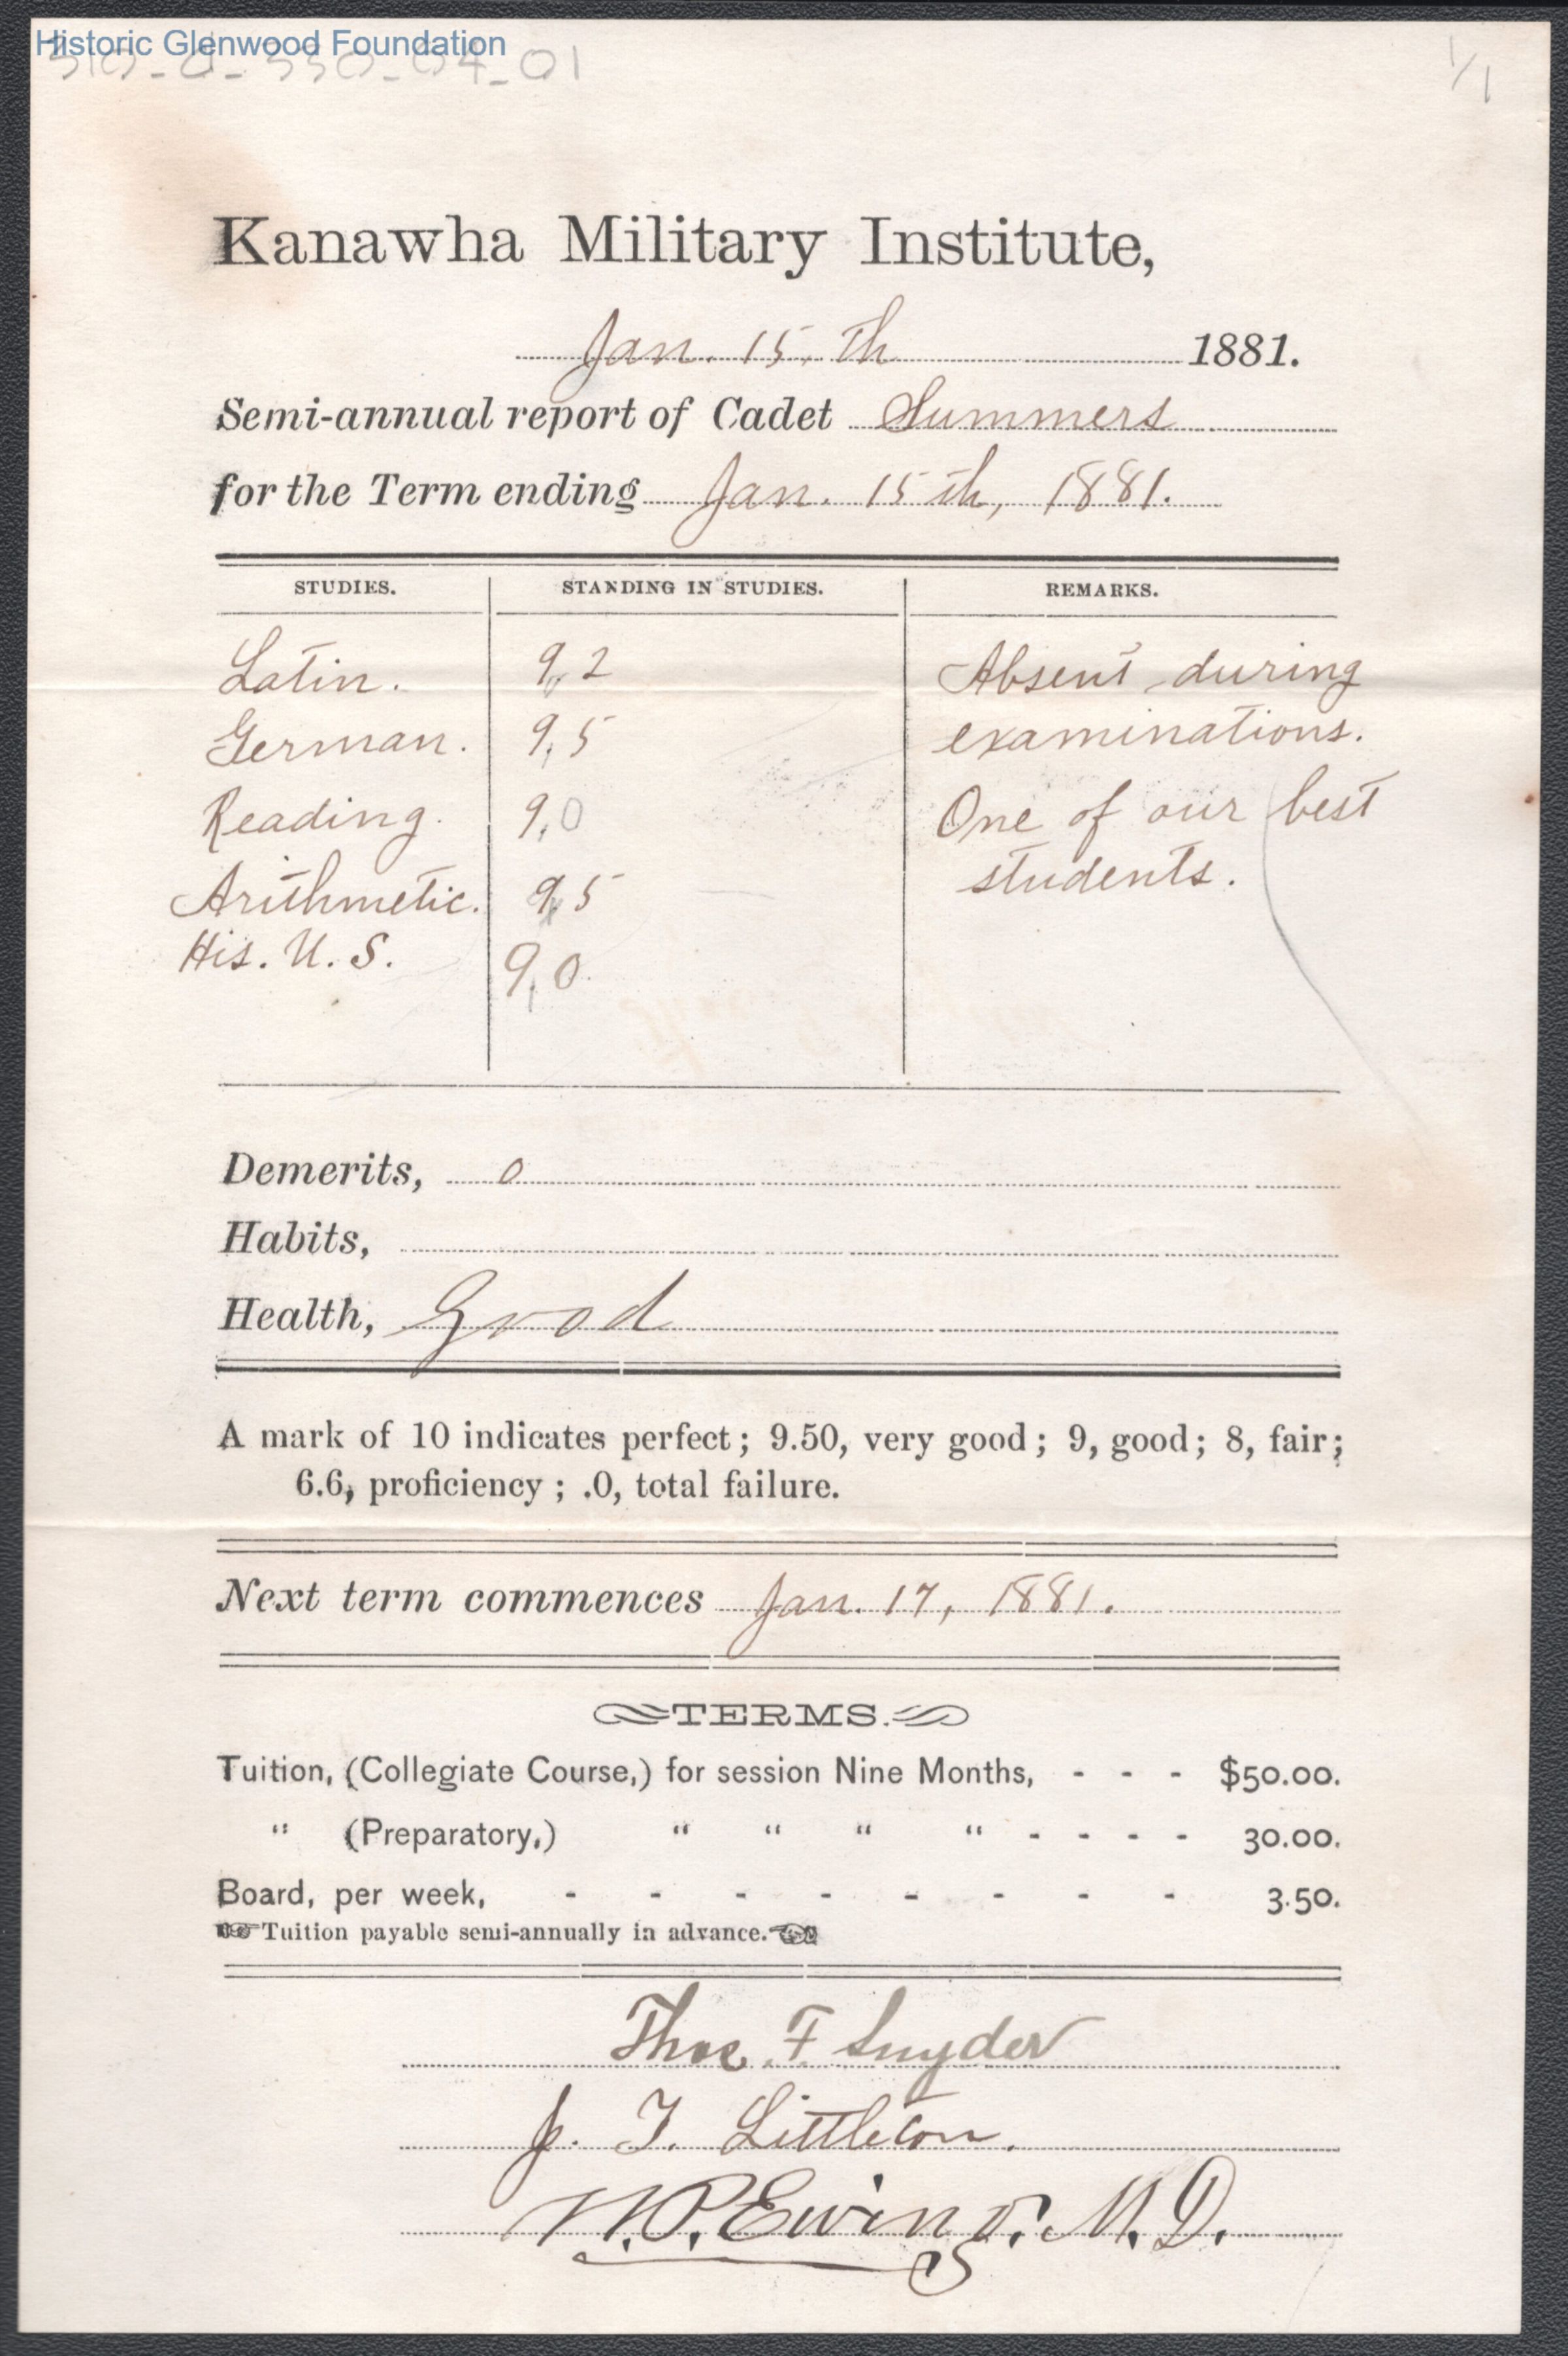 Historic Glenwood Foundation
1/1
Kanawha Military Institute,
Jan. 15. th 1881.
Semi-annual report of Cadet Summers
for the Term ending Jan. 15th, 1881.
STUDIES. STANDING IN STUDIES. REMARKS.
Latin. 9,2 Absent during
German. 9,5 examinations.
Reading. 9,0 One of our best
students.
Arithmetic. 9,5
His. U. S. 9,0
Demerits, 0
Habits,
Health, Good
A mark of 10 indicates perfect; 9.50, very good; 9, good; 8, fair;
6.6, proficiency; .0, total failure.
Next term commences Jan. 17, 1881.
TERMS.
Tuition, (Collegiate Course,) for session Nine Months, - - - $50.00.
" (Preparatory,) " " " " - - - - 30.00.
Board, per week, - - - - - - - - 3.50.
Tuition payable semi-annually in advance.
Thos. F Snyder
J. T. Littleton.
W.P. Ewing. M.D.